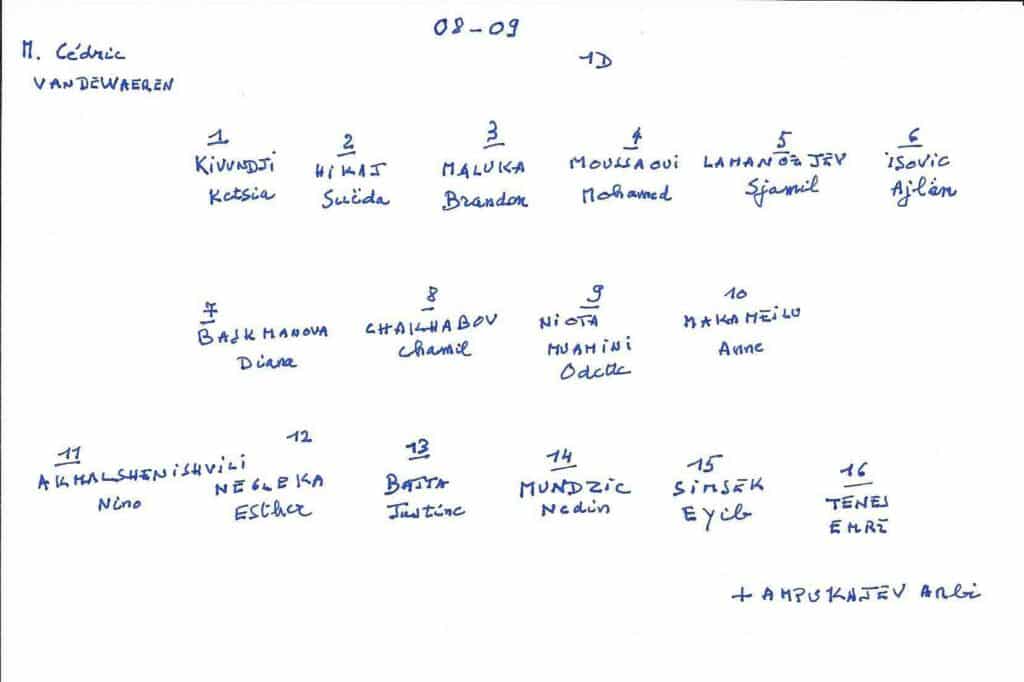 08-09
M. Cédric
VANDEWAEREN
1D
1 2 3 4 5 6
KIVUNDJI HIKAJ MALUKA MOUSSAOUI ISOVIC
Ketsia Brandon Mohamed Sjamil Ajlan
7 8 9 10
BAJKMANOVA CHAKHABOV NIOTA MAKAMEILU
Diana Chamil MUAMINI Anne
Odette
11 12 13 14 15 16
AKHALSHENISHVILI NEGLEKA MUNDZIC SIMSEK TENES
Nino Esther Justine Nedin Eyib EMRE
+ Arbi